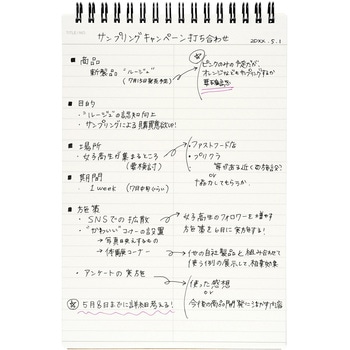 サンプリングキャンペーン打ち合わせ 20XX.5.1
■ 商品
新製品 "ルージュ"
(7月15日発売予定)
ピンクのみの予定だが、
オレンジなどもサンプリングするか
要確認
■ 目的
・"ルージュ"の認知向上
・サンプリングによる購買意欲UP!
■ 場所
・女子高生が集まるところ
(要検討)
・ファストフード店
・プリクラ
等がある近くの施設?
or
協力してもらうか
■ 期間
・1 week (7月中旬くらい)
■ 施策
・SNSでの拡散
女子高生のフォロワーを増やす
施策を6月に実施する!
・"かわいい"コーナーの設置
→写真映えするもの
→体験コーナー
他の自社製品と組み合わせて
使う例の展示して、相乗効果
・アンケートの実施
・使った感想
or
今後の商品開発に活かす内容
5月8日までに詳細考える!